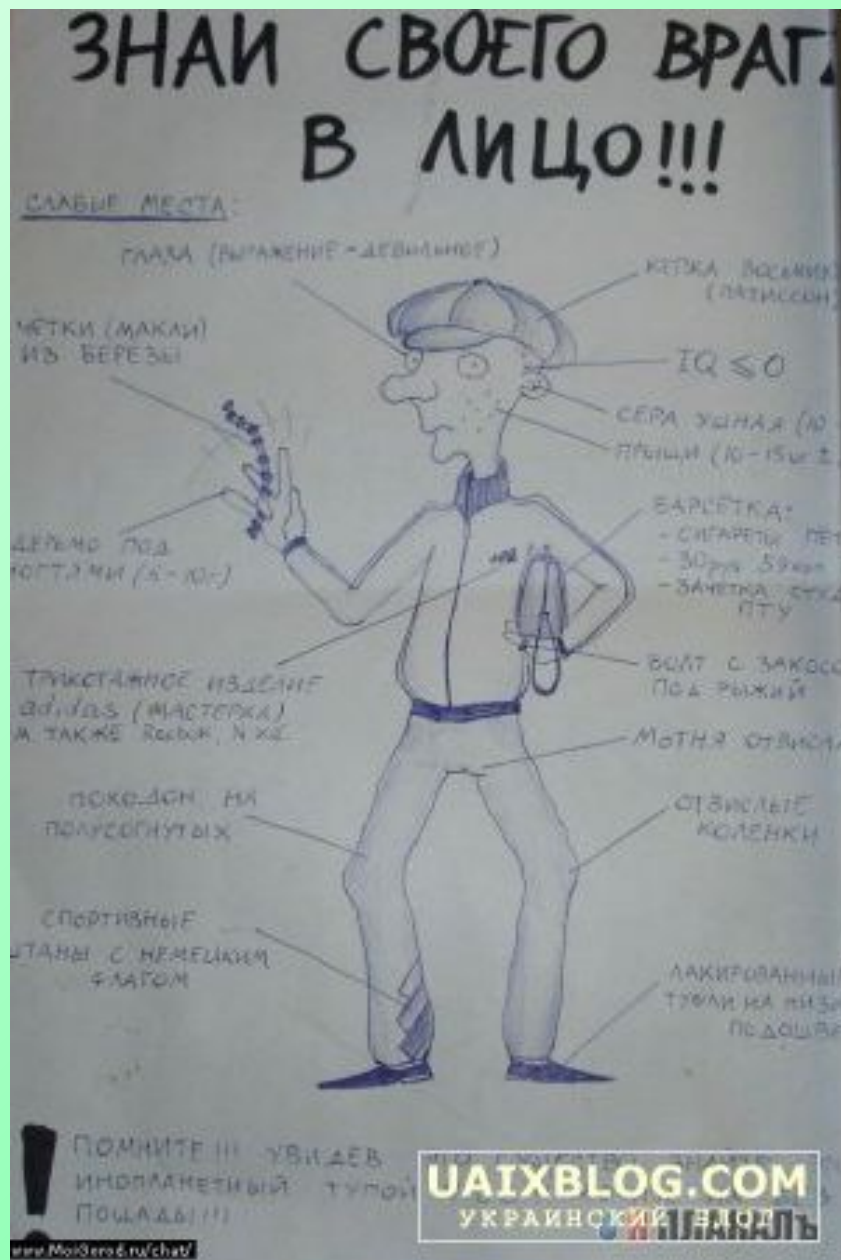 ЗНАЙ СВОЕГО ВРАГА
В ЛИЦО!!!
СЛАБЫЕ МЕСТА:
ГЛАЗА (ВЫРАЖЕНИЕ - ДЕБИЛЬНОЕ)
КЕПКА ВОСЬМИК
(ПАТИССОН)
ЧЁТКИ (МАКЛИ)
ИЗ БЕРЕЗЫ
IQ ⩽ 0
СЕРА УШНАЯ (10
ПРЫЩИ (10-15шт ±
БАРСЕТКА:
- СИГАРЕТЫ ПЕТ
- 30руб 59коп
- ЗАЧЕТКА СТУД
ПТУ
ДЕРЬМО ПОД
НОГТЯМИ (5-10г)
ТРИКОТАЖНОЕ ИЗДЕЛИЕ
adidas (МАСТЕРКА)
А ТАКЖЕ Reebok,
БОЛТ С ЗАКОСО
ПОД РЫЖИЙ
МОТНЯ ОТВИСЛА
ПОХОДОН НА
ПОЛУСОГНУТЫХ
ОТВИСЛЫЕ
КОЛЕНКИ
СПОРТИВНЫЕ
ШТАНЫ С НЕМЕЦКИМ
ФЛАГОМ
ЛАКИРОВАННЫЕ
ТУФЛИ НА НИЗК
ПОДОШВЕ
! ПОМНИТЕ!!! УВИДЕВ ЭТО СУЩЕСТВО ЗНАЙТЕ
ИНОПЛАНЕТНЫЙ ТУПОЙ
ПОЩАДЫ!!!
UAIXBLOG.COM
УКРАИНСКИЙ БЛОГ
ЯПЛАКАЛЪ
www.MoiGorod.ru/chat/